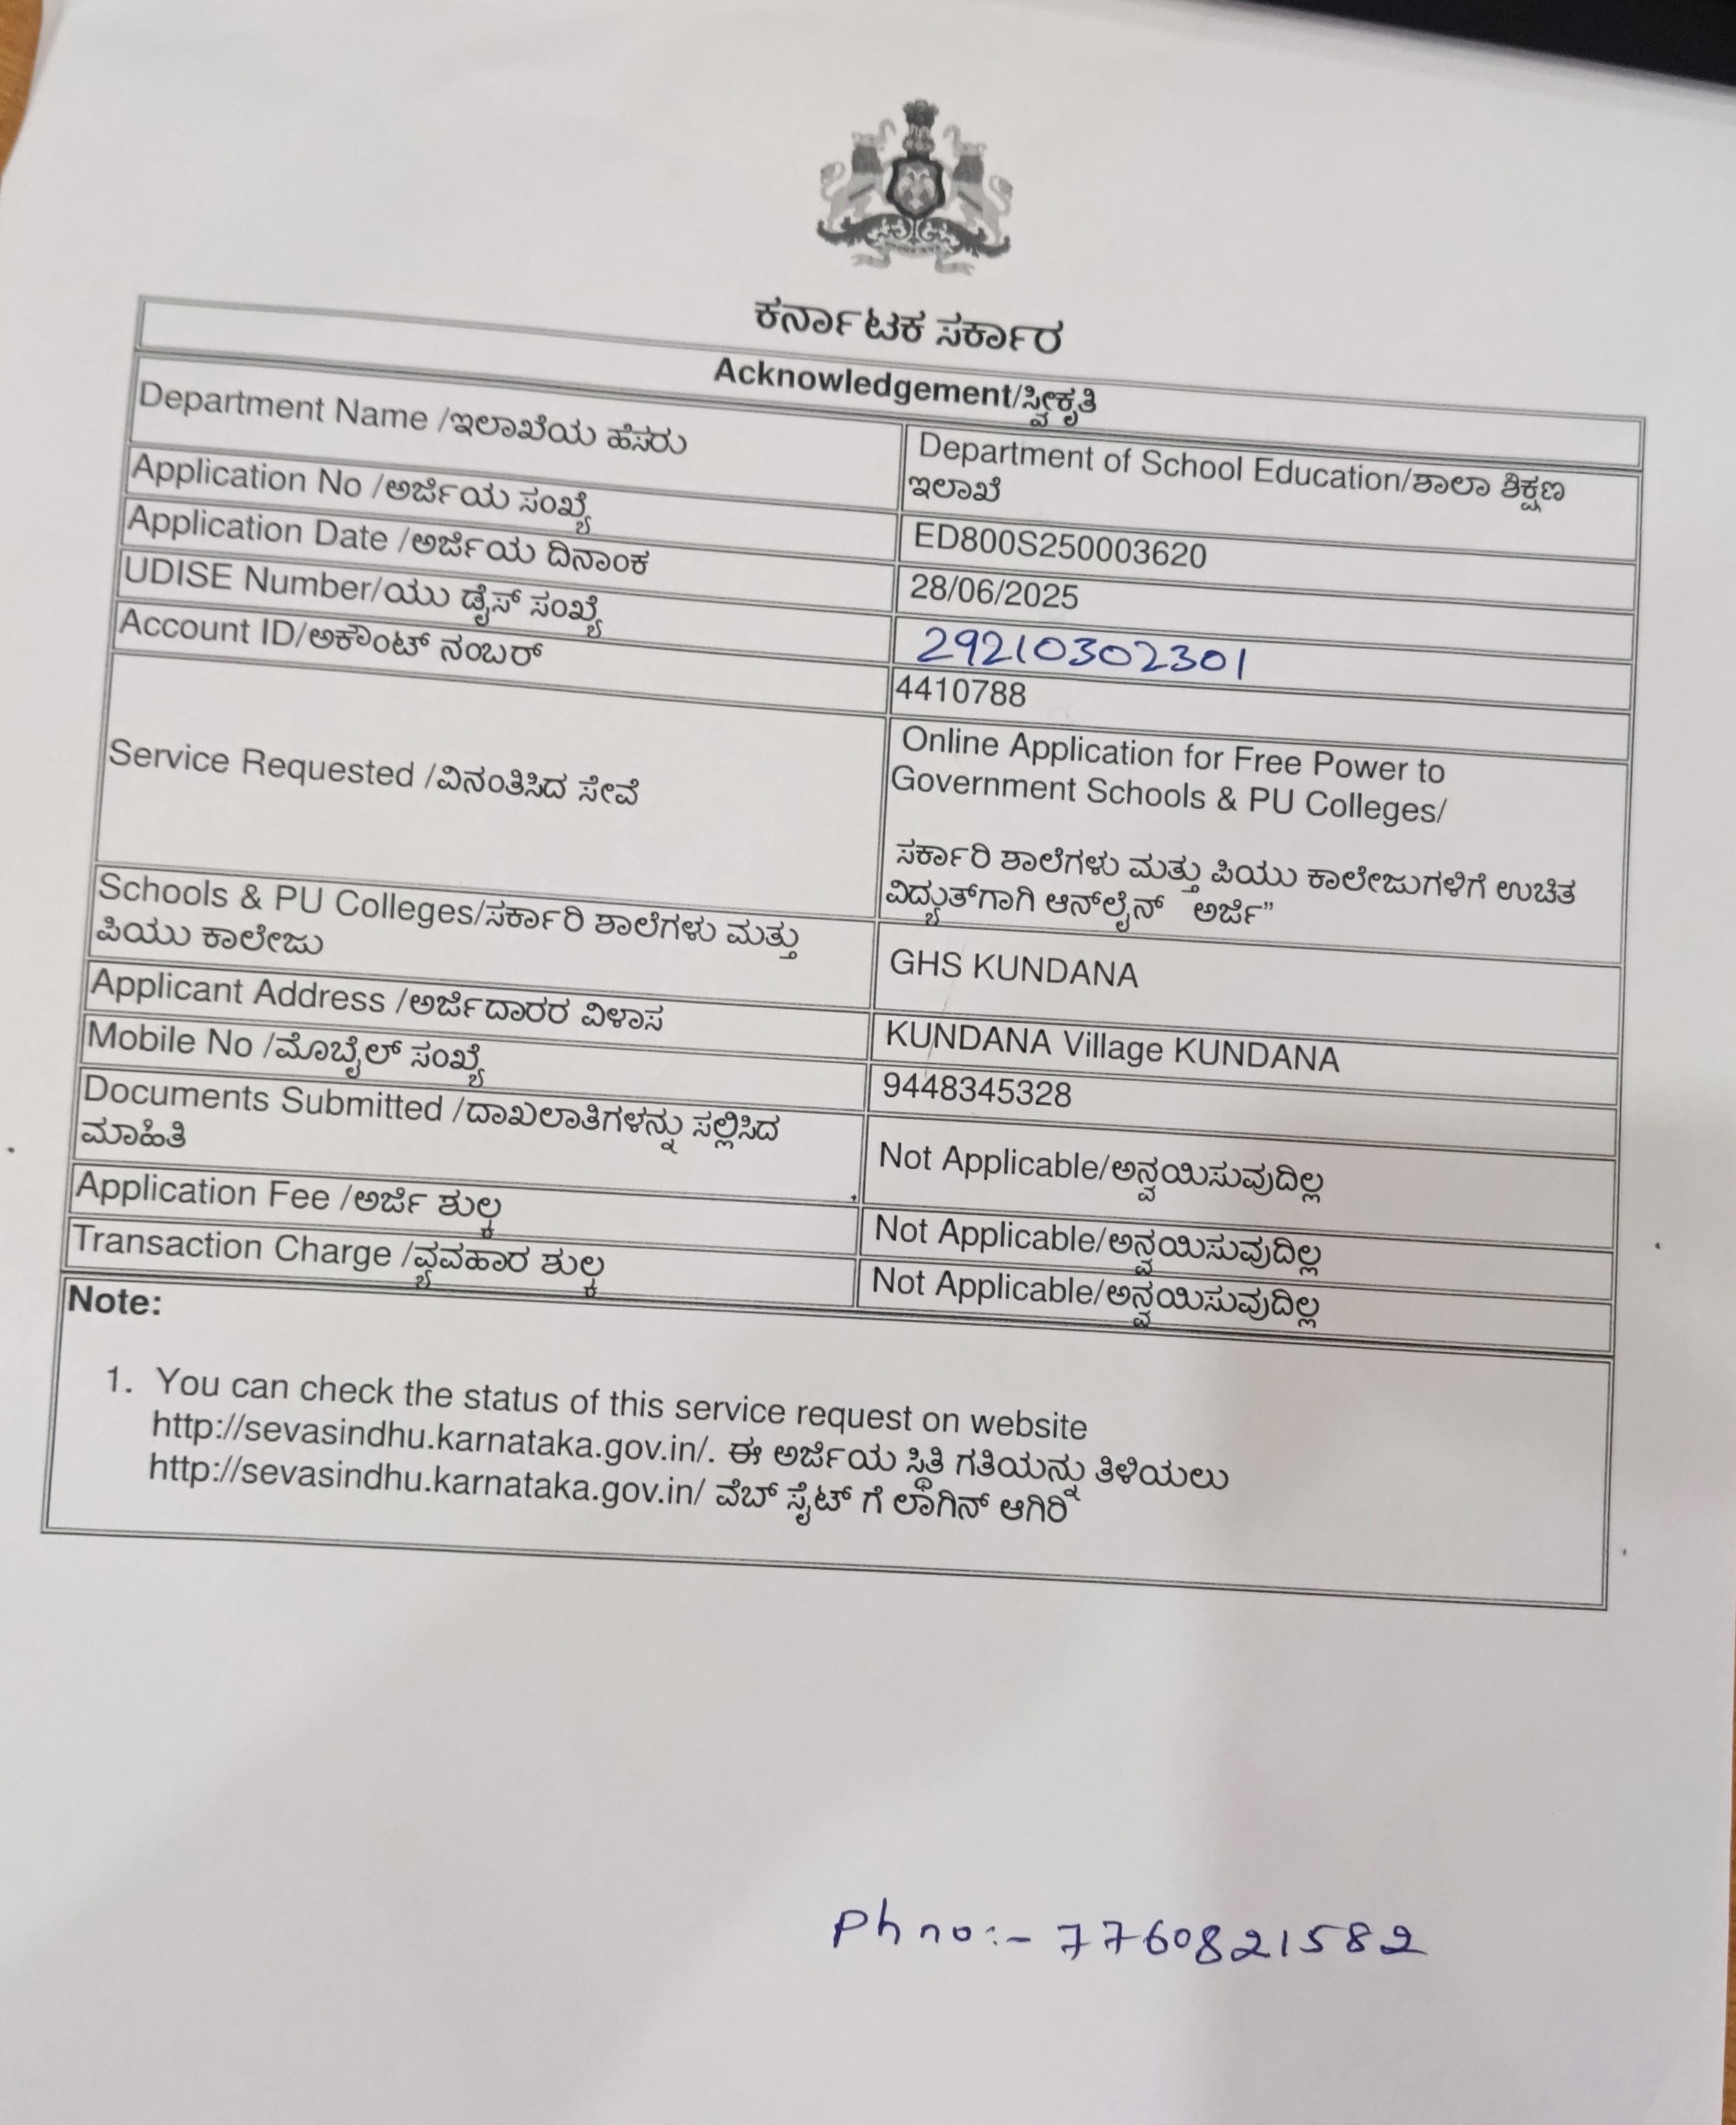 ಕರ್ನಾಟಕ ಸರ್ಕಾರ
Acknowledgement/ಸ್ವೀಕೃತಿ
Department Name /ಇಲಾಖೆಯ ಹೆಸರು
Department of School Education/ಶಾಲಾ ಶಿಕ್ಷಣ
ಇಲಾಖೆ
Application No /ಅರ್ಜಿಯ ಸಂಖ್ಯೆ
ED800S250003620
Application Date /ಅರ್ಜಿಯ ದಿನಾಂಕ
28/06/2025
UDISE Number/ಯು ಡೈಸ್ ಸಂಖ್ಯೆ
29210302301
Account ID/ಅಕೌಂಟ್ ನಂಬರ್
4410788
Service Requested /ವಿನಂತಿಸಿದ ಸೇವೆ
Online Application for Free Power to
Government Schools & PU Colleges/
ಸರ್ಕಾರಿ ಶಾಲೆಗಳು ಮತ್ತು ಪಿಯು ಕಾಲೇಜುಗಳಿಗೆ ಉಚಿತ
ವಿದ್ಯುತ್‌ಗಾಗಿ ಆನ್‌ಲೈನ್ ಅರ್ಜಿ”
Schools & PU Colleges/ಸರ್ಕಾರಿ ಶಾಲೆಗಳು ಮತ್ತು
ಪಿಯು ಕಾಲೇಜು
GHS KUNDANA
Applicant Address /ಅರ್ಜಿದಾರರ ವಿಳಾಸ
KUNDANA Village KUNDANA
Mobile No /ಮೊಬೈಲ್ ಸಂಖ್ಯೆ
9448345328
Documents Submitted /ದಾಖಲಾತಿಗಳನ್ನು ಸಲ್ಲಿಸಿದ
ಮಾಹಿತಿ
Not Applicable/ಅನ್ವಯಿಸುವುದಿಲ್ಲ
Application Fee /ಅರ್ಜಿ ಶುಲ್ಕ
Not Applicable/ಅನ್ವಯಿಸುವುದಿಲ್ಲ
Transaction Charge /ವ್ಯವಹಾರ ಶುಲ್ಕ
Not Applicable/ಅನ್ವಯಿಸುವುದಿಲ್ಲ
Note:
1. You can check the status of this service request on website
http://sevasindhu.karnataka.gov.in/. ಈ ಅರ್ಜಿಯ ಸ್ಥಿತಿ ಗತಿಯನ್ನು ತಿಳಿಯಲು
http://sevasindhu.karnataka.gov.in/ ವೆಬ್ ಸೈಟ್ ಗೆ ಲಾಗಿನ್ ಆಗಿರಿ
Ph no:- 7760821582